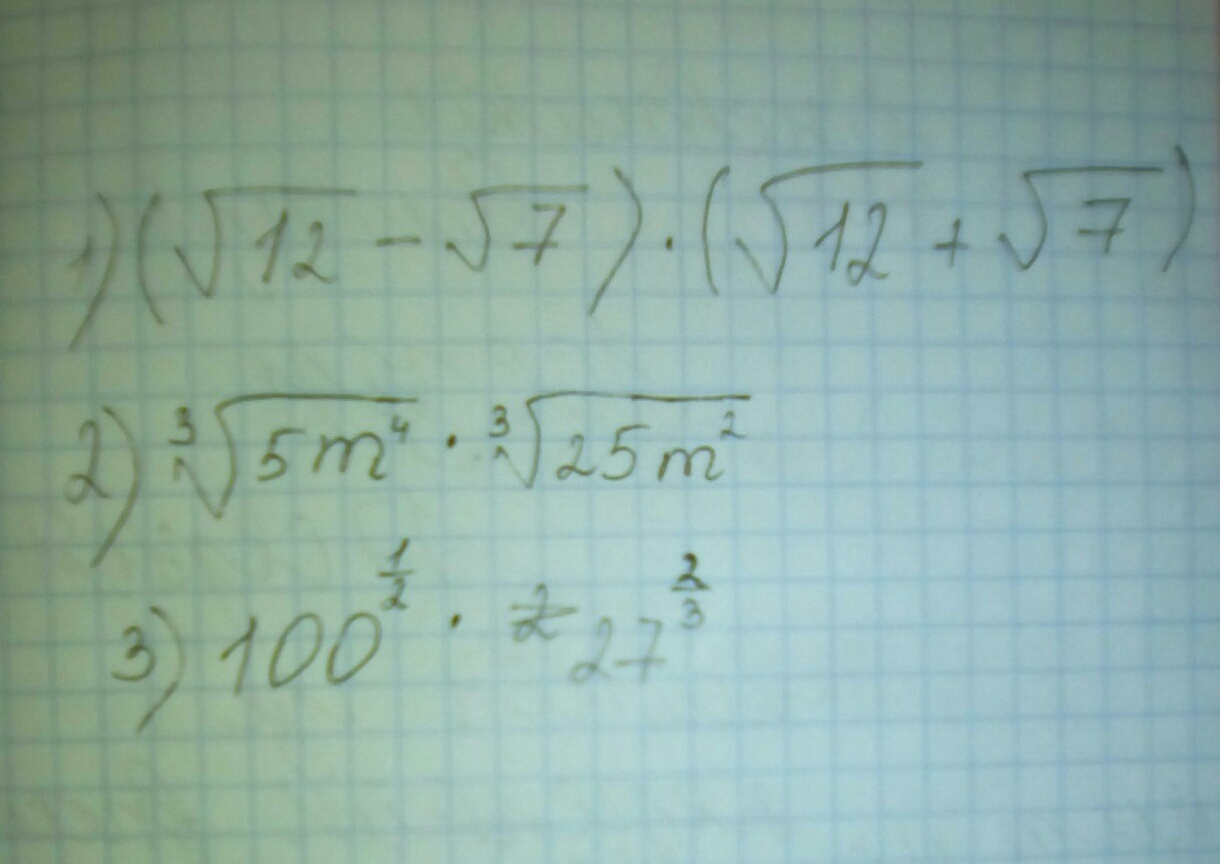 1) (√12 - √7) · (√12 + √7)
2) ∛5m⁴ · ∛25m²
3) 100^(1/2) · 27^(2/3)